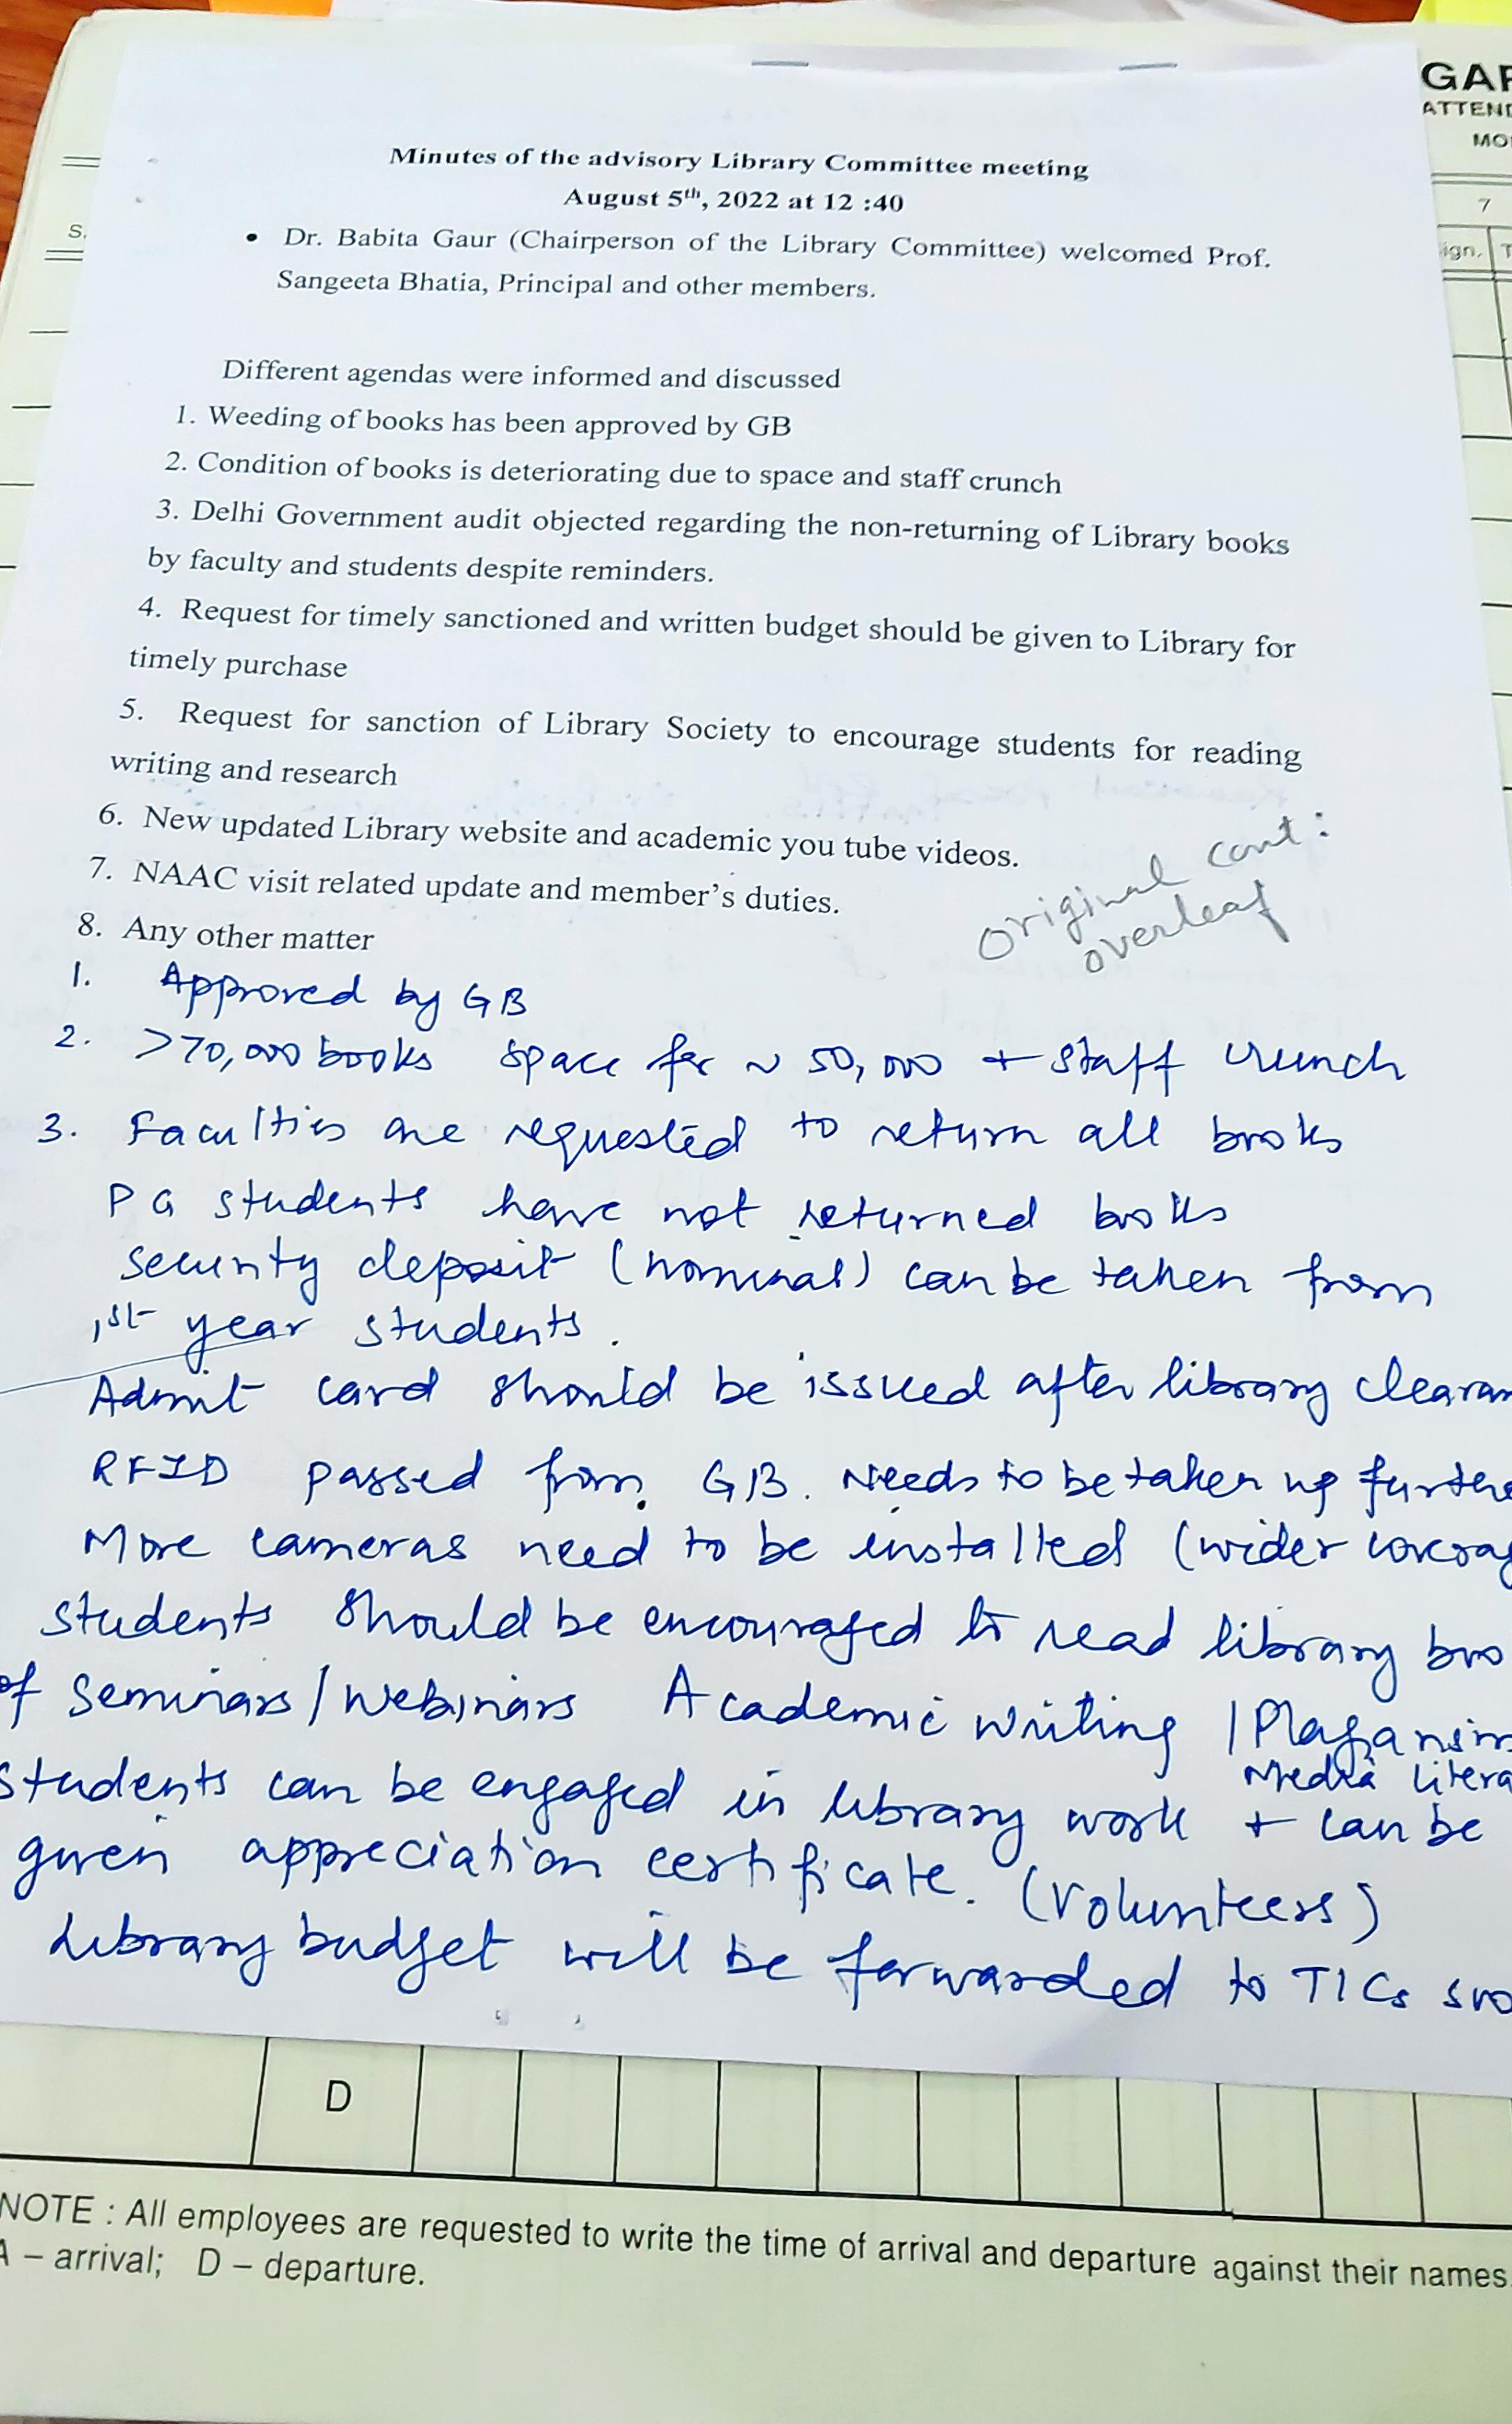 GAR
ATTEND
MO
7
S.
ign.
T
Minutes of the advisory Library Committee meeting
August 5th, 2022 at 12 :40
• Dr. Babita Gaur (Chairperson of the Library Committee) welcomed Prof.
Sangeeta Bhatia, Principal and other members.
Different agendas were informed and discussed
1. Weeding of books has been approved by GB
2. Condition of books is deteriorating due to space and staff crunch
3. Delhi Government audit objected regarding the non-returning of Library books
by faculty and students despite reminders.
4. Request for timely sanctioned and written budget should be given to Library for
timely purchase
5. Request for sanction of Library Society to encourage students for reading
writing and research
6. New updated Library website and academic you tube videos.
7. NAAC visit related update and member's duties.
8. Any other matter
original cont:
overleaf
1. Approved by GB
2. >70,000 books space for ~ 50,000 + staff crunch
3. Faculties are requested to return all books
PG students have not returned books
security deposit (nominal) can be taken from
1st year students.
Admit card should be issued after library clearan
RFID passed from GB. Needs to be taken up furthe
More cameras need to be installed (wider coverag
students should be encouraged to read library boo
of Seminars/Webinars Academic writing / Plagarism
Media litera
students can be engaged in library work + can be
given appreciation certificate. (Volunteers)
Library budget will be forwarded to TICs soo
D
NOTE : All employees are requested to write the time of arrival and departure against their names.
A – arrival; D – departure.